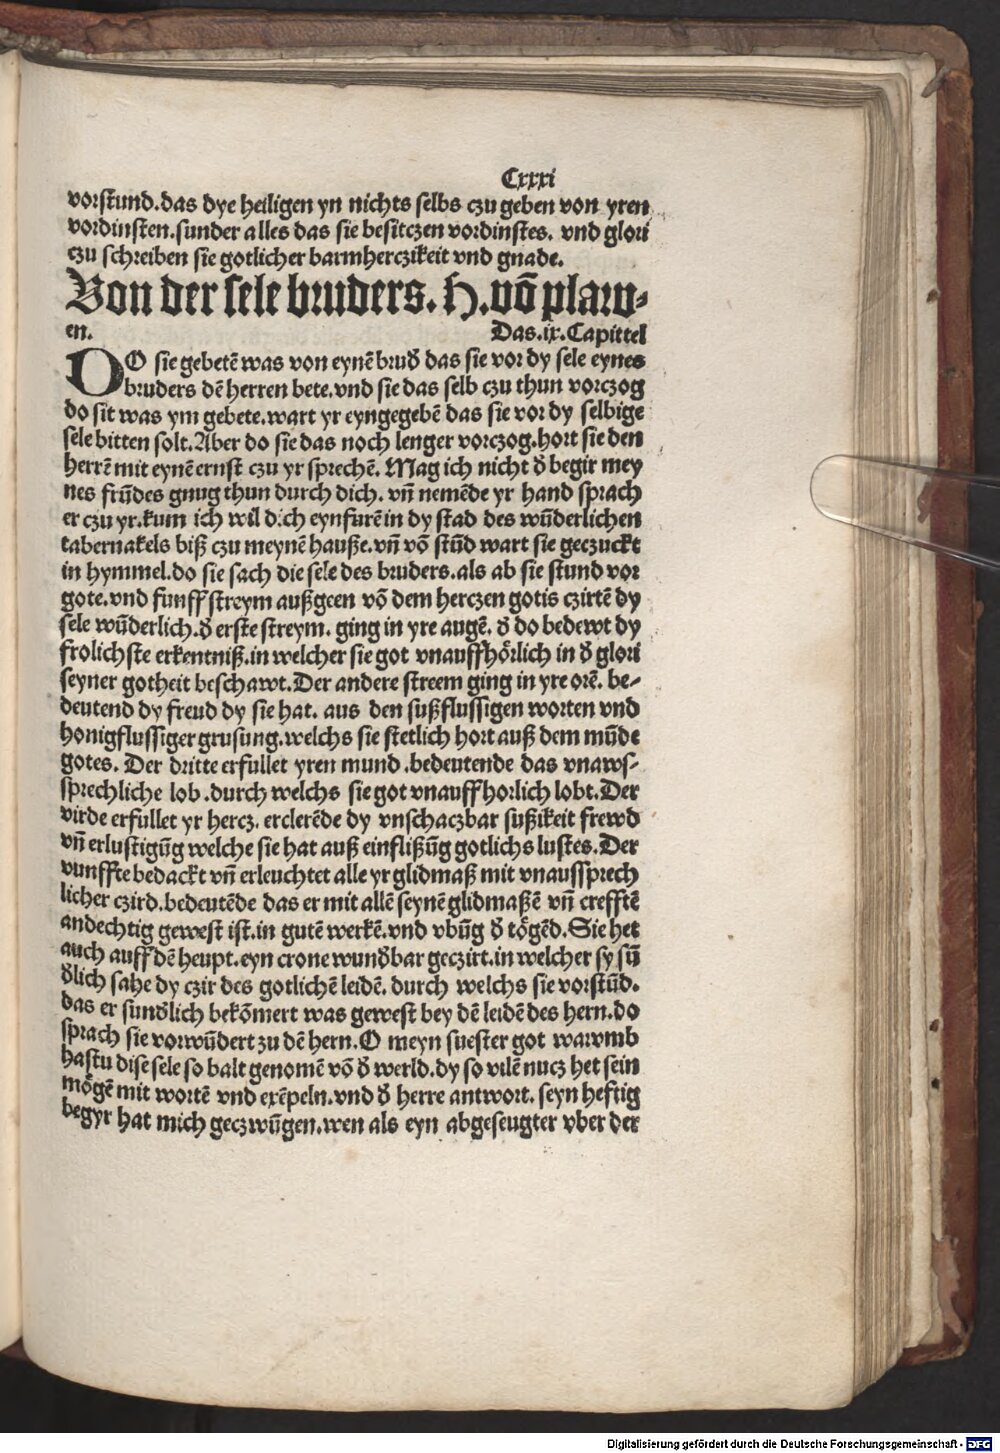 Cxxxi
vorstund.das dye heiligen yn nichts selbs czu geben von yren
vordinsten.sunder alles das sie besitczen vordinstes. vnd glori
czu schreiben sie gotlicher barmherczikeit vnd gnade.
Von der sele bruders. H. võ plaw⸗
en. Das.ix.Capittel
DO sie gebetẽ was von eynẽ brud̉ das sie vor dy sele eynes
bruders dẽ herren bete.vnd sie das selb czu thun vorczog
do sit was ym gebete.wart yr eyngegebẽ das sie vor dy selbige
sele bitten solt.Aber do sie das noch lenger vorczog.hort sie den
herrẽ mit eynẽ ernst czu yr sprechẽ. Mag ich nicht d̉ begir mey
nes frũdes gnug thun durch dich. vñ nemẽde yr hand sprach
er czu yr.kum ich wil dich eynfurẽ in dy stad des wũderlichen
tabernakels biß czu meynẽ hauße.vñ võ stũd wart sie geczuckt
in hymmel.do sie sach die sele des bruders.als ab sie stund vor
gote.vnd funff streym außgeen võ dem herczen gotis czirtẽ dy
sele wũderlich.d̉ erste streym. ging in yre augẽ. d̉ do bedewt dy
frolichste erkentniß.in welcher sie got vnauffhoͤrlich in d̉ glori
seyner gotheit beschawt.Der andere streem ging in yre orẽ. be⸗
deutend dy freud dy sie hat. aus den sußflussigen worten vnd
honigflussiger grusung.welchs sie stetlich hort auß dem mũde
gotes. Der dritte erfullet yren mund .bedeutende das vnaws⸗
sprechliche lob .durch welchs sie got vnauffhorlich lobt.Der
virde erfullet yr hercz. erclerẽde dy vnschaczbar sußikeit frewd
vñ erlustigũg welche sie hat auß einflißũg gotlichs lustes.Der
vunffte bedackt vñ erleuchtet alle yr glidmaß mit vnaussprech
licher czird.bedeutẽde das er mit allẽ seynẽ glidmaßẽ vñ crefftẽ
andechtig gewest ist.in gutẽ werkẽ.vnd vbũg d̉ toͤgẽd.Sie het
auch auff dẽ heupt.eyn crone wund̉bar geczirt.in welcher sy sũ
d̉lich sahe dy czir des gotlichẽ leidẽ. durch welchs sie vorstũd.
das er sund̉lich bekõmert was gewest bey dẽ leidẽ des hern.do
sprach sie vorwũdert zu dẽ hern.O meyn suester got warvmb
hastu dise sele so balt genomẽ võ d̉ werld.dy so vilẽ nucz het sein
moͤgẽ mit wortẽ vnd exẽpeln.vnd d̉ herre antwort. seyn heftig
begyr hat mich geczwũgen.wen als eyn abgeseugter vber der
Digitalisierung gefördert durch die Deutsche Forschungsgemeinschaft - DFG